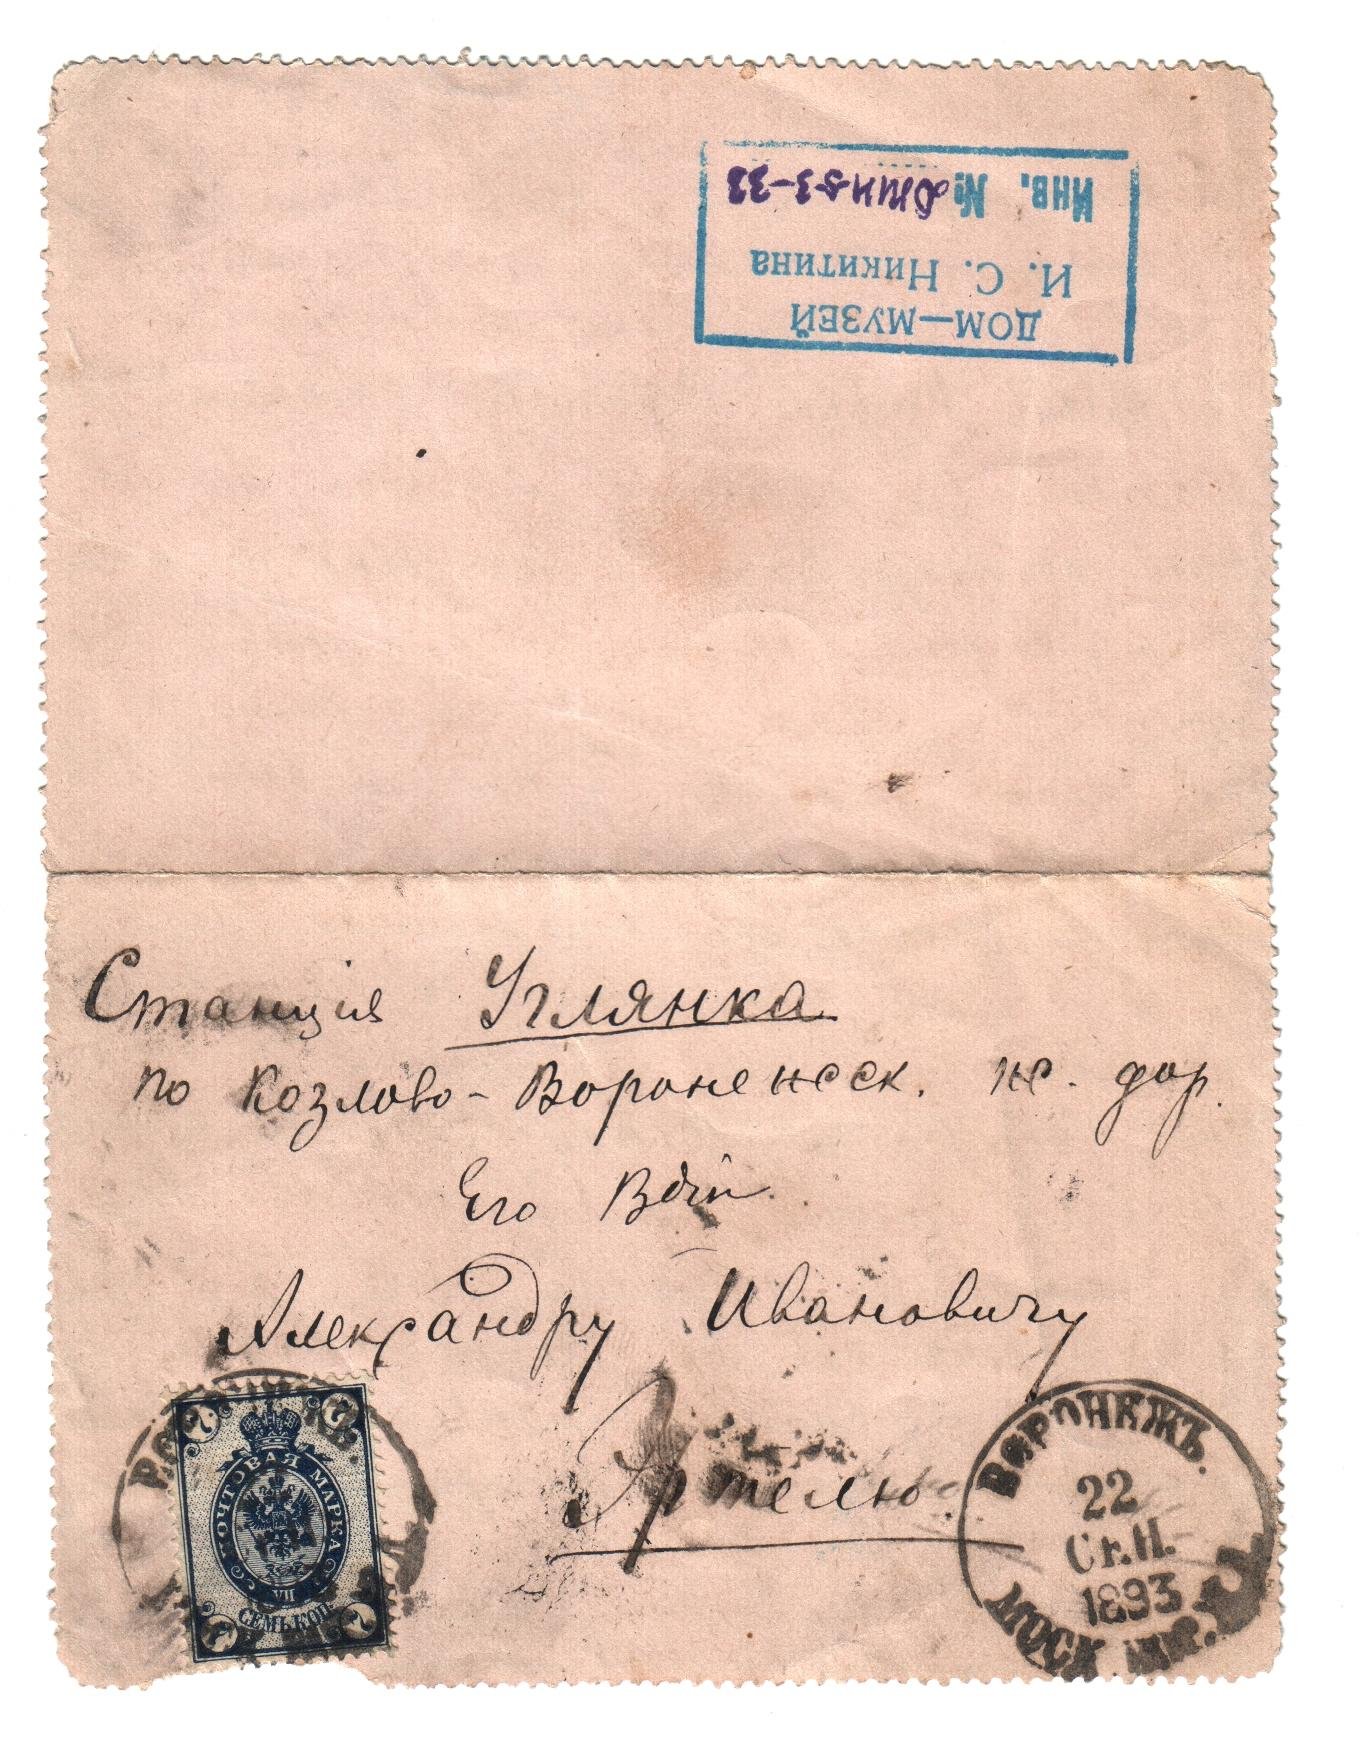 ДОМ—МУЗЕЙ
И. С. Никитина
Инв. № ДМН 53-33
Станція Углянка
по Козлово-Воронежск. ж. дор.
Его Вдію
Александру Ивановичу
Эртелю.
ПОЧТОВАЯ МАРКА
VII
СЕМЬ КОП.
7 7 7 7
ВОРОНЕЖЪ.
22
СЕН.
1893
МОСК.